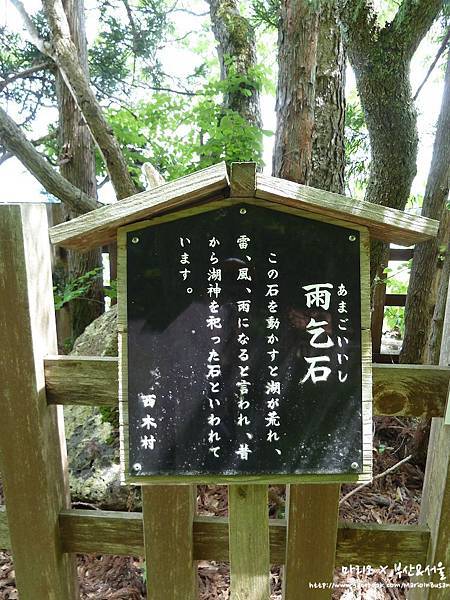 あまごいいし
雨乞石
この石を動かすと湖が荒れ、
雷、風、雨になると言われ、昔
から湖神を祀った石といわれて
います。
西木村
마리조 × 부산요서방